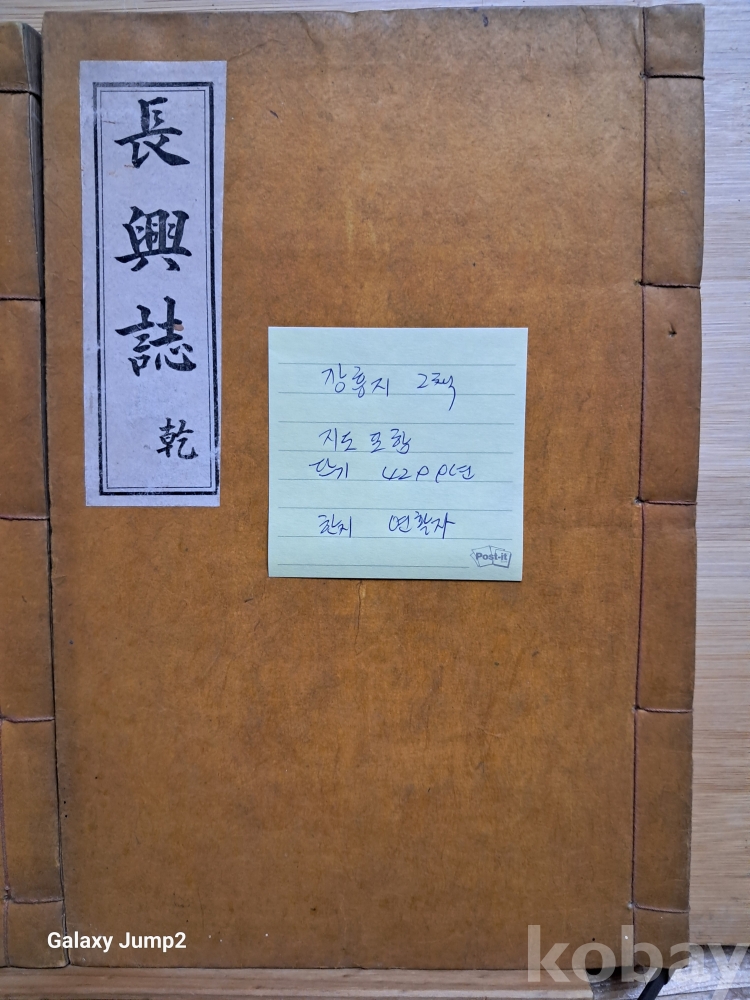 長興誌 乾
장흥지 2책
지도 포함
단기 4299년
한지 연활자
Post-it
Galaxy Jump2
kobay